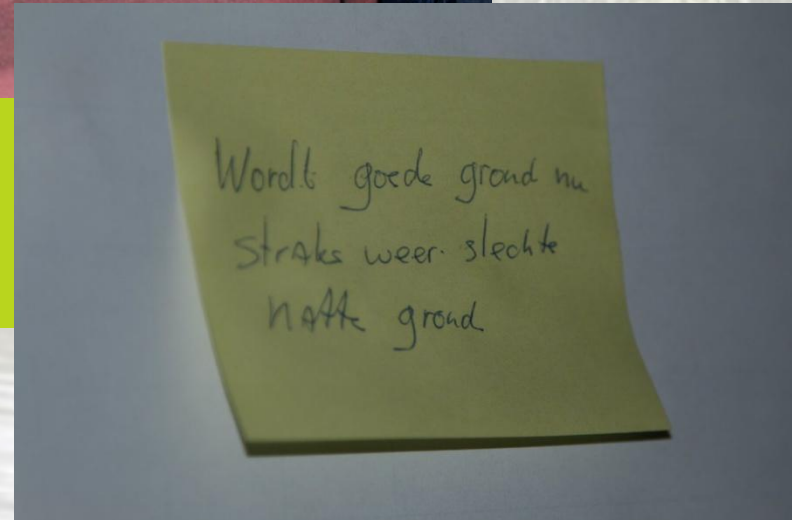 Wordt goede grond nu
straks weer slechte
natte grond